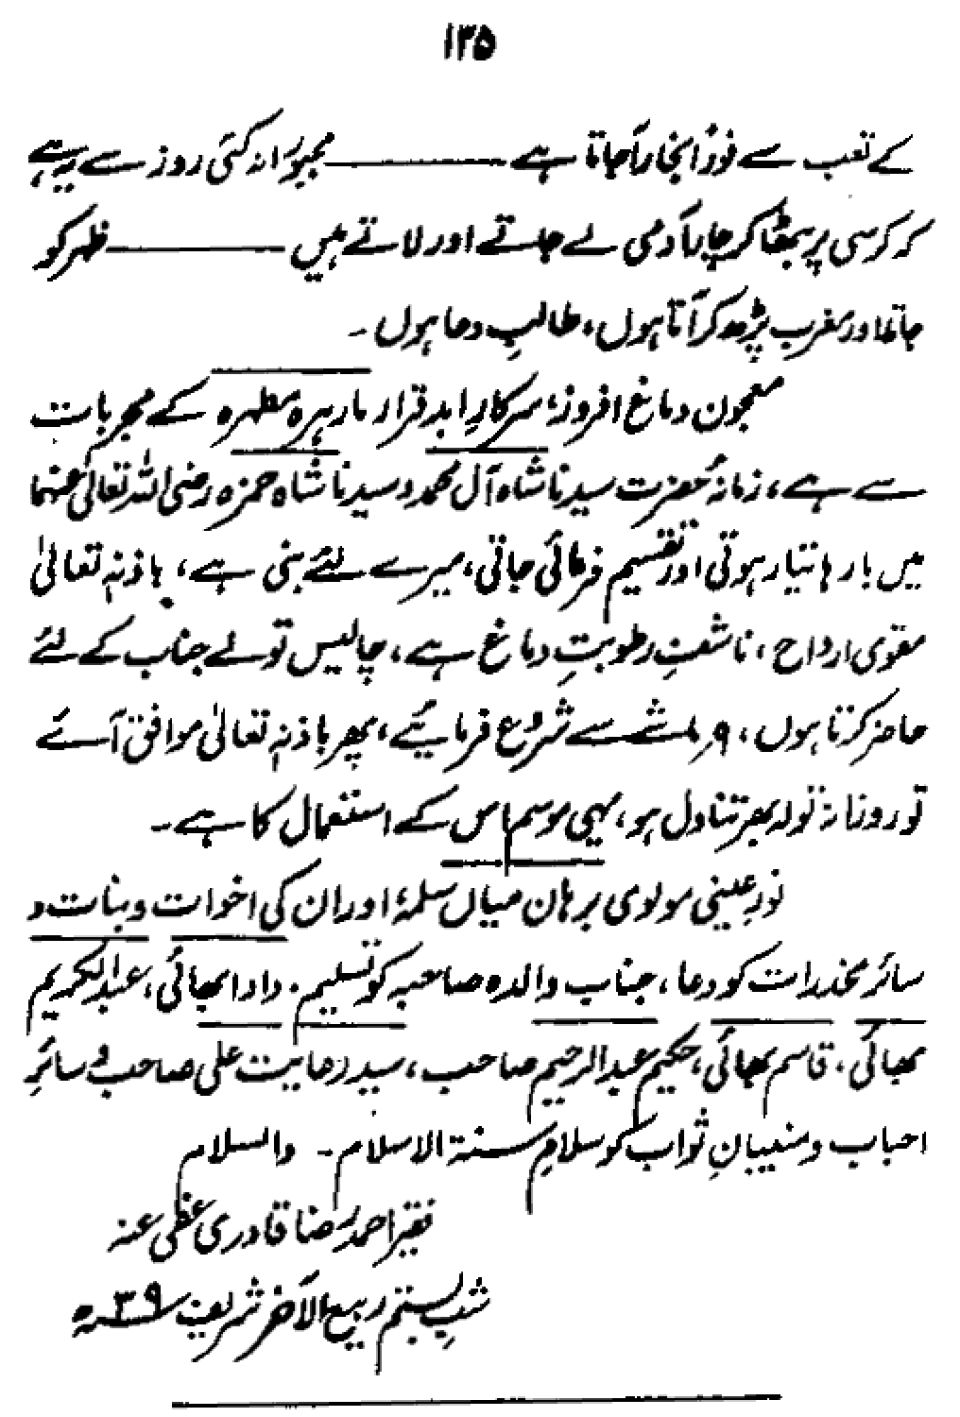 ۱۳۵
کے تعب سے فوراً بخار آجاتا ہے ــــــــ مجبورانہ کئی روز سے یہ ہے
کہ کرسی پر بٹھا کر چار آدمی لے جاتے اور لاتے ہیں ــــــــ ظہر کو
جاتا اور مغرب پڑھ کر آتا ہوں، طالبِ دعا ہوں ۔
معجون دماغ افروز، سرکارِ ابد قرار مارہرہ مطہرہ کے مجربات
سے ہے، زمانۂ حضرت سیدنا شاہ آل محمد و سیدنا شاہ حمزہ رضی اللہ تعالیٰ عنہما
میں بارہا تیار ہوتی اور تقسیم فرمائی جاتی، میرے لئے بنی ہے، باذنہٖ تعالیٰ
مقوی ارواح، ناشفِ رطوبتِ دماغ ہے، چالیس تولے جناب کے لئے
حاضر کرتا ہوں، ۹ ماشے سے شروع فرمائیے، پھر باذنہٖ تعالیٰ موافق آئے
تو روزانہ تولہ بھر تناول ہو، یہی موسم اس کے استعمال کا ہے ۔
نورِ عینی مولوی برہان میاں سلمہٗ اور ان کی اخوات و بنات و
سائر مخدرات کو دعا، جناب والدہ صاحبہ کو تسلیم. دادا بھائی، عبدالکریم
بھائی، قاسم بھائی، حکیم عبدالرحیم صاحب، سید رعایت علی صاحب و سائرِ
احباب و منیبانِ ثواب کو سلامِ سنۃ الاسلام ۔ والسلام
فقیر احمد رضا قادری عفی عنہ
شبِ بستم ربیع الآخر شریف ۳۹ ھ